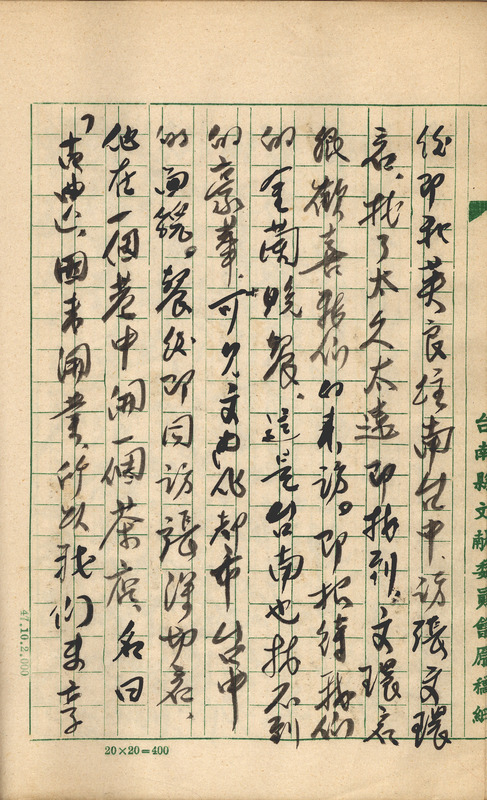 台南縣文獻委員會原稿紙
後即和英良往南台中、訪張文環
君、找了太久太遠即找到。文環君
很歡喜我們的來訪。即招待我們
的金蘭晚餐、這是台南也找不到
的豪華、可見文化都市台中
的面貌。餐後即同訪張深切君、
他在一個巷中開一個茶店、名曰
「古典」、因未開業、所以我們未享
20×20=400
47.10.2,000